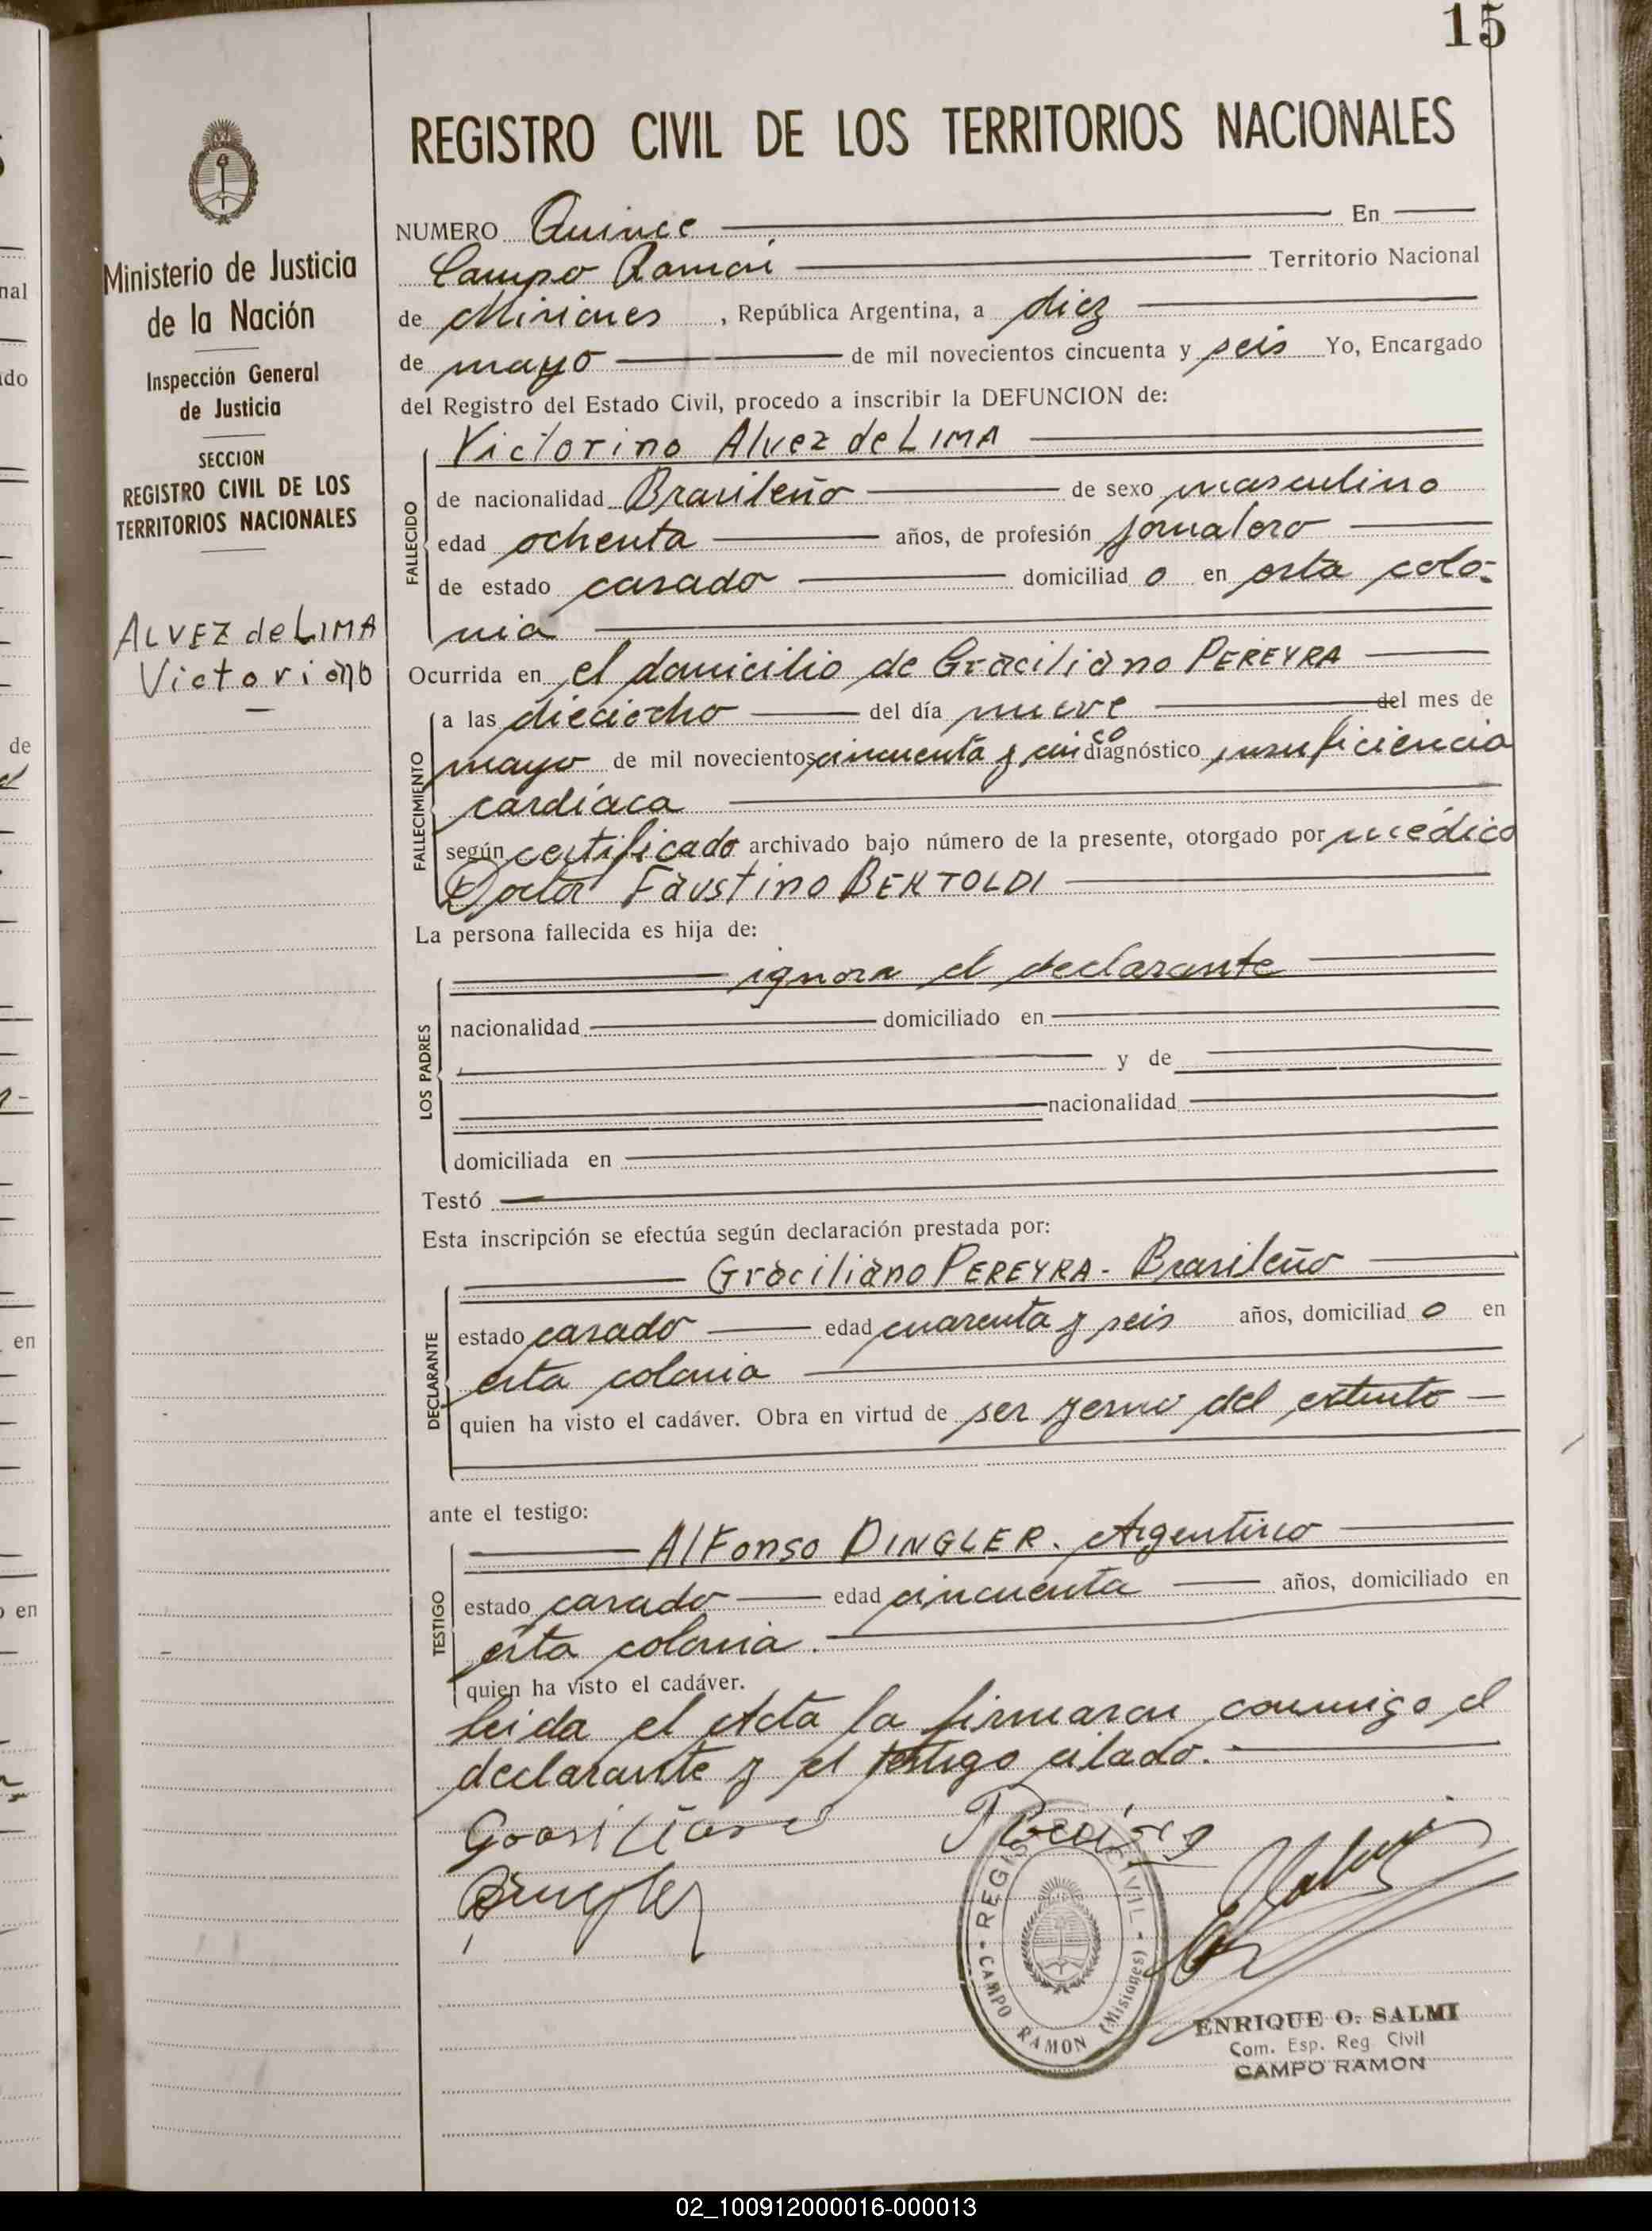 15
REGISTRO CIVIL DE LOS TERRITORIOS NACIONALES
Ministerio de Justicia
de la Nación
Inspección General
de Justicia
SECCION
REGISTRO CIVIL DE LOS
TERRITORIOS NACIONALES
ALVEZ de LIMA
Victoriano
NUMERO Quince En
Campo Ramón Territorio Nacional
de Misiones, República Argentina, a diez
de mayo de mil novecientos cincuenta y seis Yo, Encargado
del Registro del Estado Civil, procedo a inscribir la DEFUNCION de:
Victorino Alvez de LIMA
FALLECIDO
de nacionalidad Brasileño de sexo masculino
edad ochenta años, de profesión jornalero
de estado casado domiciliad o en esta colo-
nia
Ocurrida en el domicilio de Graciliano PEREYRA
FALLECIMIENTO
a las dieciocho del día nueve del mes de
mayo de mil novecientos cincuenta y diagnóstico insuficiencia
cardíaca
según certificado archivado bajo número de la presente, otorgado por médico
Doctor Faustino BERTOLDI
La persona fallecida es hija de:
ignora el declarante
LOS PADRES
nacionalidad domiciliado en
y de
nacionalidad
domiciliada en
Testó
Esta inscripción se efectúa según declaración prestada por:
Graciliano PEREYRA - Brasileño
DECLARANTE
estado casado edad cuarenta y seis años, domiciliad o en
esta colonia
quien ha visto el cadáver. Obra en virtud de ser yerno del extinto
ante el testigo:
Alfonso DINGLER. Argentino
TESTIGO
estado casado edad cincuenta años, domiciliado en
esta colonia.
quien ha visto el cadáver.
Leida el Acta la firmaron conmigo el
declarante y el testigo citado.
REGISTRO CIVIL
CAMPO RAMON (Misiones)
ENRIQUE O. SALMI
Com. Esp. Reg. Civil
CAMPO RAMON
02_100912000016-000013